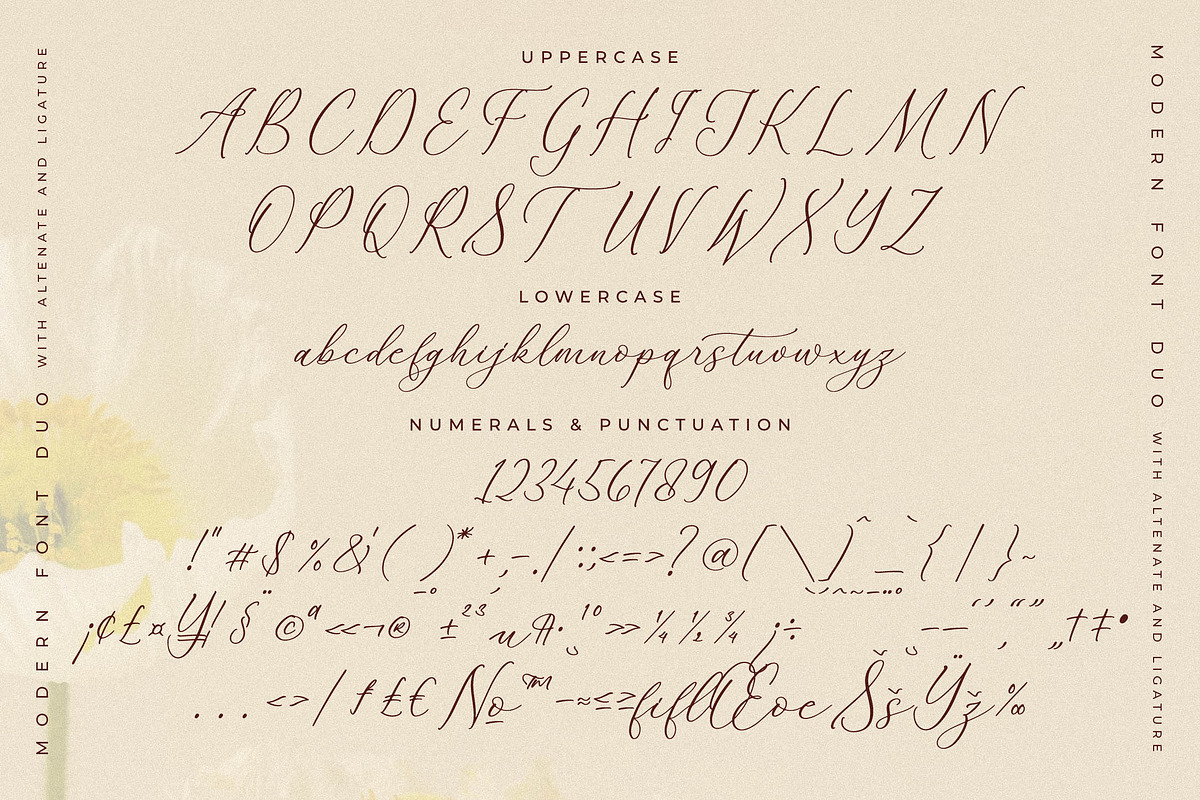 UPPERCASE
ABCDEFGHIJKLMN
OPQRSTUVWXYZ
LOWERCASE
abcdefghijklmnopqrstuvwxyz
NUMERALS & PUNCTUATION
1234567890
!"#$%&'()*+,-./:;<=>?@[\]^_`{|}~
¡¢£¤¥¦§¨©ª«¬®¯°±²³´µ¶·¸¹º»¼½¾¿÷ – — ‘ ’ ‚ “ ” „ † ‡ •
... ‹ › ⁄ ƒ ₤ € № ™ − ≈ ≤ ≥ fi fl Œ œ Š š Ÿ ž ‰
MODERN FONT DUO WITH ALTENATE AND LIGATURE
MODERN FONT DUO WITH ALTENATE AND LIGATURE